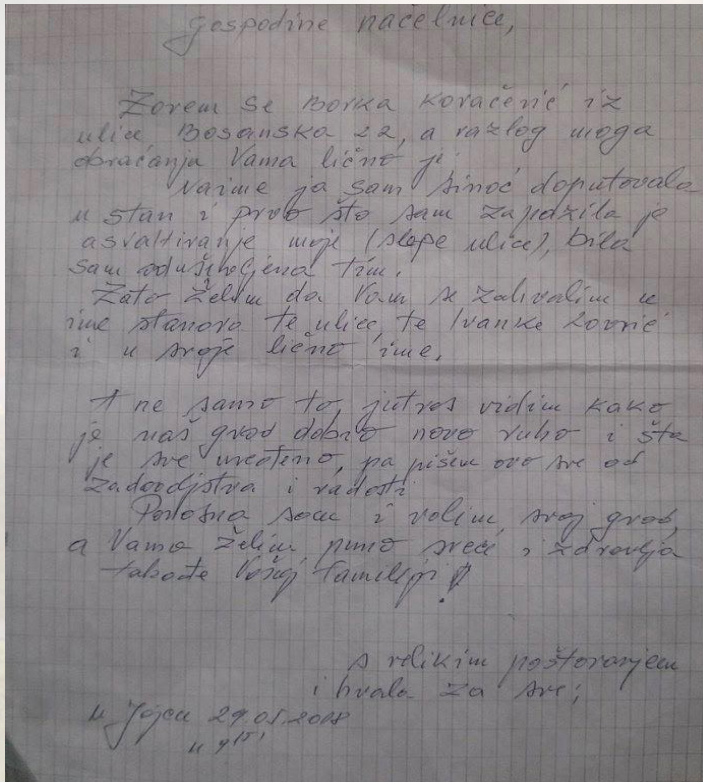 Gospodine načelniče,
Zovem se Borka Kovačević iz
ulice Bosanska 22, a razlog moga
obraćanja Vama lično je.
Naime ja sam sinoć doputovala
u stan i prvo što sam zapazila je
asvaltiranje moje (slepe ulice), bila
sam oduševljena tim.
Zato želim da Vam se zahvalim u
ime stanova te ulice, te Ivanke Lovrić
i u svoje lično ime.
A ne samo to, jutros vidim kako
je naš grad dobio novo ruho i šta
je sve uređeno, pa pišem ovo sve od
zadovoljstva i radosti
Ponosna sam i volim svoj grad,
a Vama želim puno sreće i zdravlja
takođe Vašoj familiji!
s velikim poštovanjem
i hvala za sve;
u Jajcu 29.05.2018
u 9 15